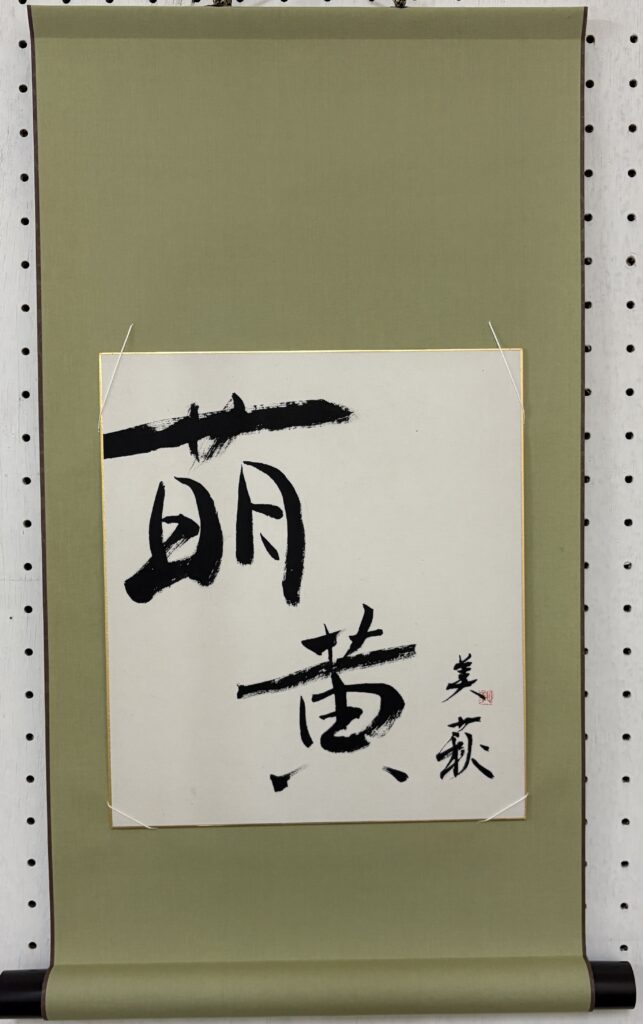 萌
黄
美萩